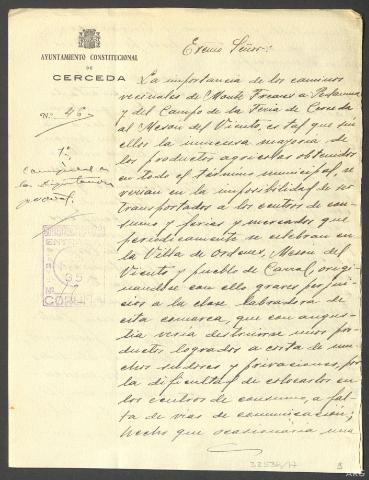 AYUNTAMIENTO CONSTITUCIONAL
DE
CERCEDA
Nº 46
Excmo Señor:
La importancia de los caminos
vecinales de Monte Xocaus a
y del Campo de la Feria de Cerceda
al Meson del Viento, es tal que sin
ellos la inmensa mayoria de
los productos agricolas obtenidos
en todo el término municipal, se
verian en la imposibilidad de ser
transportados a los centros de con-
sumo y ferias y mercados que
periodicamente se celebran en
la Villa de Ordenes, Meson del
Viento y pueblo de Carral, origi-
nandose con ello graves perjui-
cios a la clase labradora de
esta comarca, que con angus-
tia veria destruirse unos pro-
ductos logrados a costa de mu-
chos sudores y privaciones, por
la dificultad de colocarlos en
los centros de consumo, a fal-
ta de vias de comunicación;
hecho que ocasionaria una
ENTR
CORUÑA
32536/17